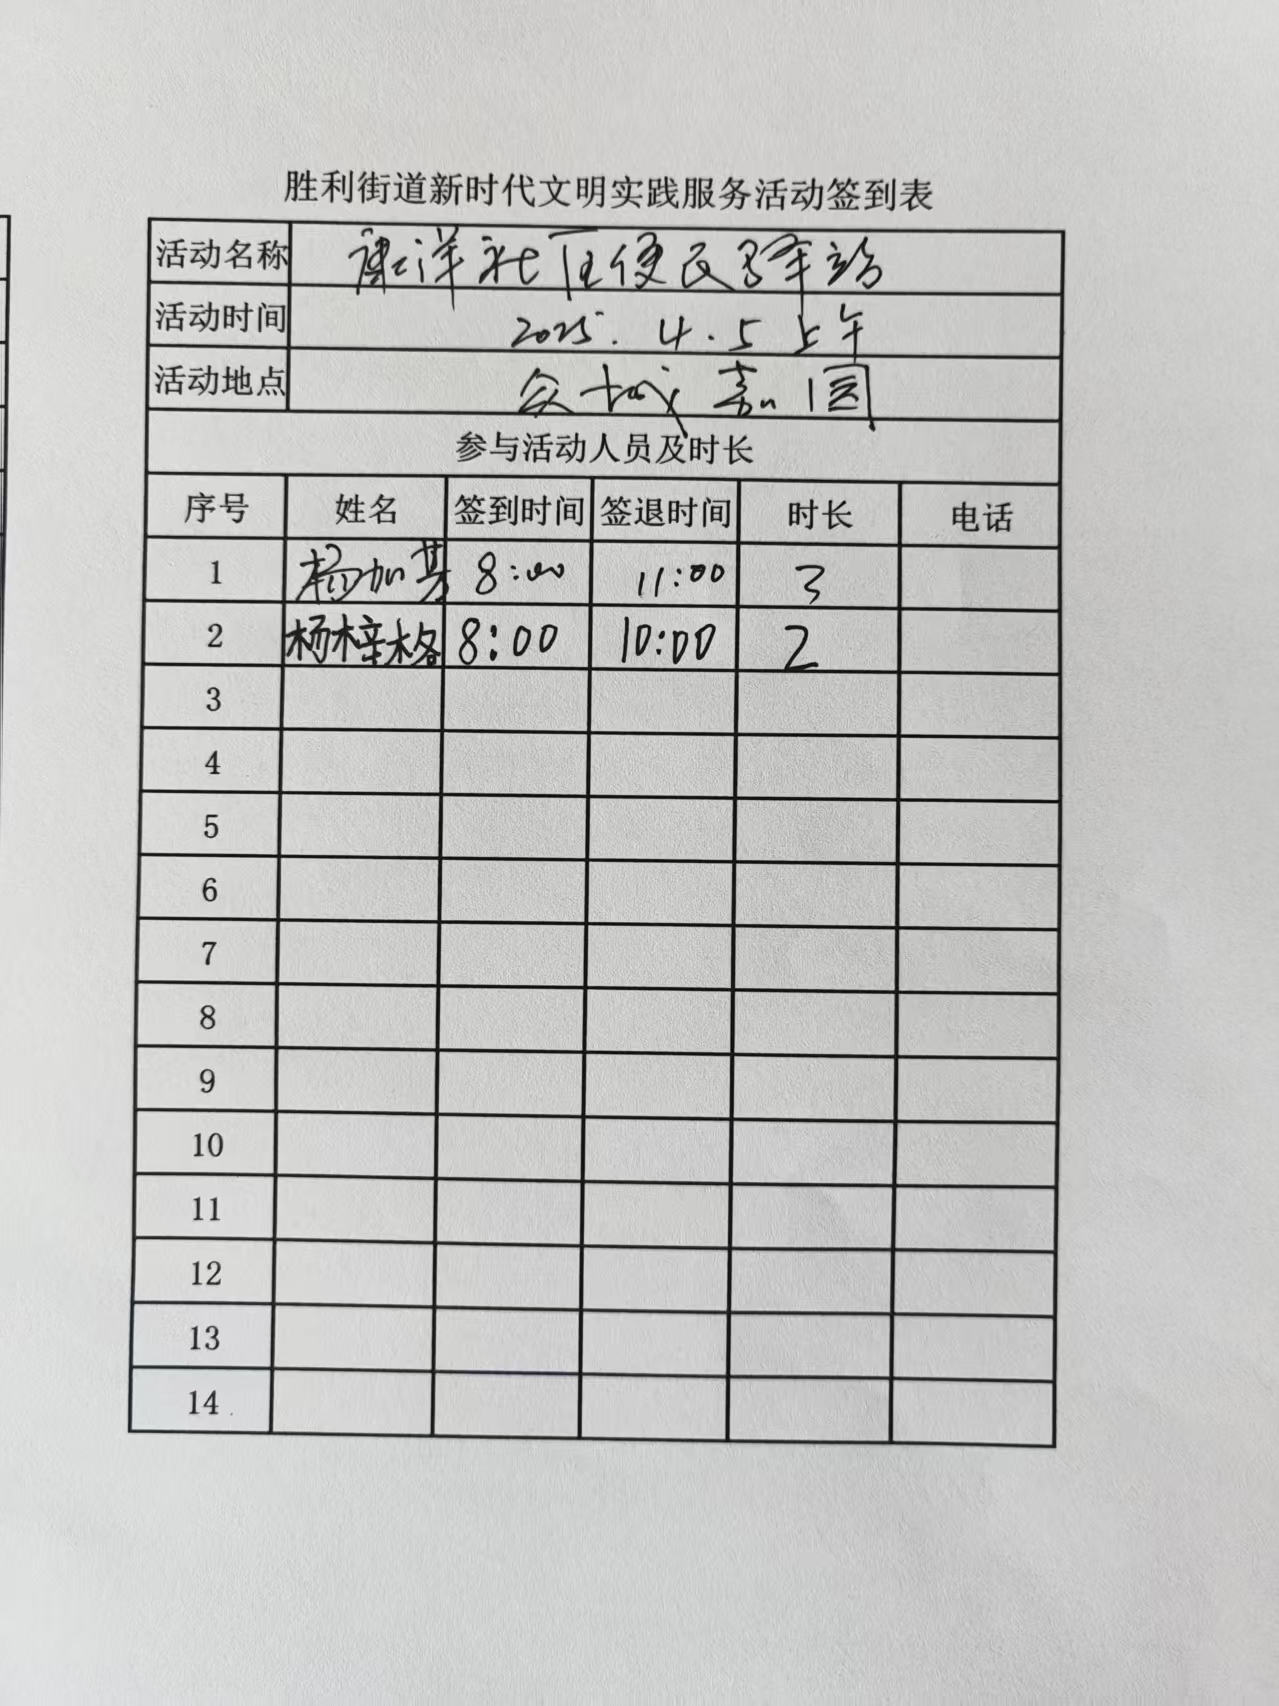 胜利街道新时代文明实践服务活动签到表
活动名称 康洋社区便民驿站
活动时间 2025.4.5上午
活动地点 众城嘉园
参与活动人员及时长
序号 姓名 签到时间 签退时间 时长 电话
1 杨加其 8:00 11:00 3
2 杨梓格 8:00 10:00 2
3
4
5
6
7
8
9
10
11
12
13
14